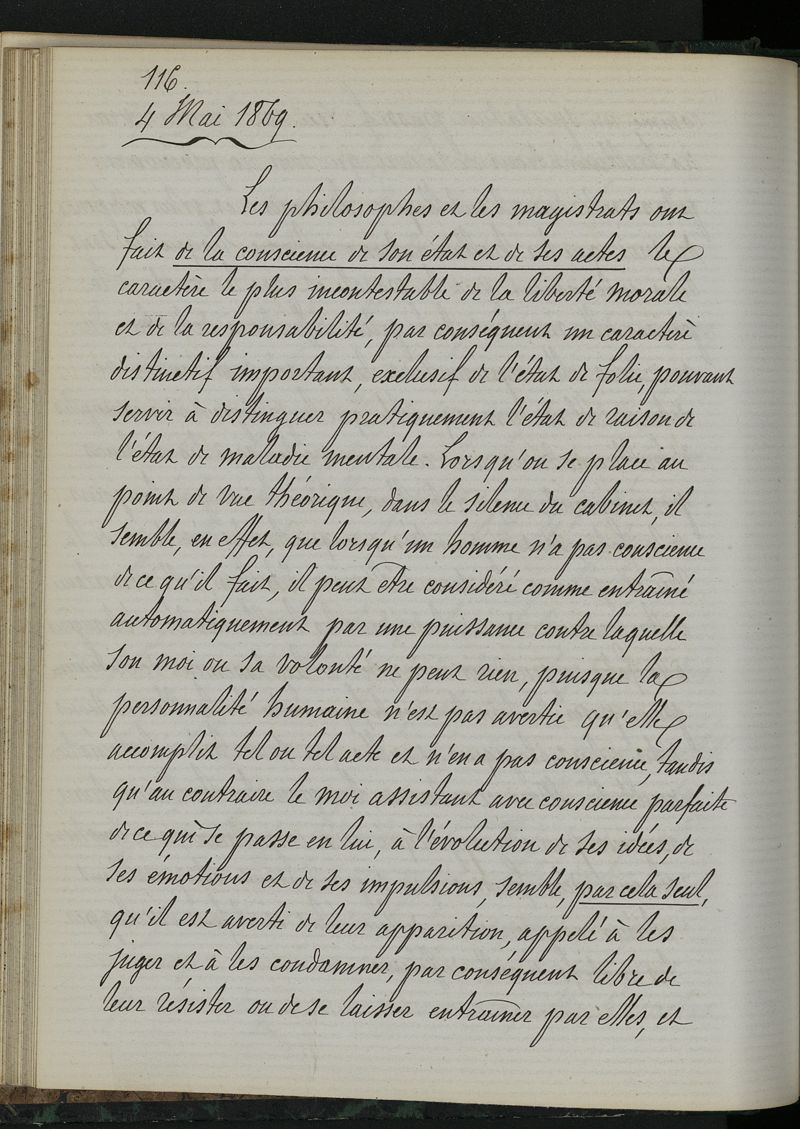 116.
4 Mai 1869.
Les philosophes et les magistrats ont
fait de la conscience de son état et de ses actes le
caractère le plus incontestable de la liberté morale
et de la responsabilité, par conséquent un caractère
distinctif important, exclusif de l'état de folie, pouvant
servir à distinguer pratiquement l'état de raison de
l'état de maladie mentale. Lorsqu'on se place au
point de vue théorique, dans le silence du cabinet, il
semble, en effet, que lorsqu'un homme n'a pas conscience
de ce qu'il fait, il peut être considéré comme entraîné
automatiquement par une puissance contre laquelle
son moi ou sa volonté ne peut rien, puisque la
personnalité humaine n'est pas avertie qu'elle
accomplit tel ou tel acte et n'en a pas conscience, tandis
qu'au contraire le moi assistant avec conscience parfaite
de ce qui se passe en lui, à l'évolution de ses idées, de
ses émotions et de ses impulsions, semble, par cela seul,
qu'il est averti de leur apparition, appelé à les
juger et à les condamner, par conséquent libre de
leur résister ou de se laisser entraîner par elles, et